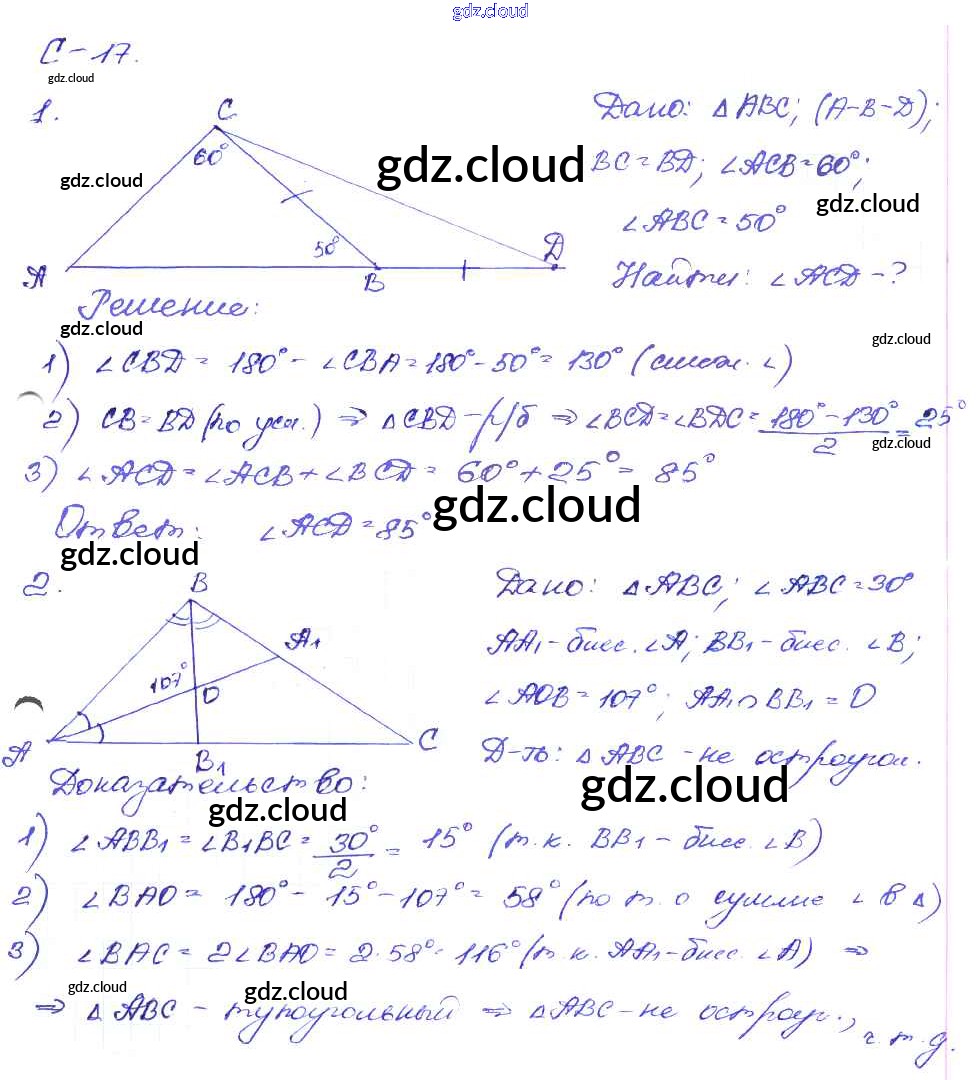 gdz.cloud
С-17.
gdz.cloud
1.
C
60°
50°
A
B
D
Дано: △ABC; (A-B-D);
gdz.cloud
gdz.cloud
BC=BD; ∠ACB=60°;
gdz.cloud
∠ABC=50°
Найти: ∠ACD-?
Решение:
gdz.cloud
gdz.cloud
1) ∠CBD = 180° - ∠CBA = 180° - 50° = 130° (смеж. ∠)
2) CB=BD (по усл.) ⇒ △CBD - р/б ⇒ ∠BCD=∠BDC= (180°-130°)/2 = 25°
gdz.cloud
3) ∠ACD=∠ACB+∠BCD = 60°+25° = 85°
gdz.cloud
Ответ: ∠ACD=85°
gdz.cloud
2.
B
A1
107°
O
A
B1
C
Дано: △ABC; ∠ABC=30°
AA1-бисс. ∠A; BB1-бисс. ∠B;
∠AOB=107°; AA1∩BB1=O
Д-ть: △ABC -не остроугол.
gdz.cloud
Доказательство:
gdz.cloud
1) ∠ABB1=∠B1BC= 30°/2 = 15° (т.к. BB1-бисс. ∠B)
2) ∠BAO = 180°-15°-107° = 58° (по т. о сумме ∠ в △)
3) ∠BAC = 2∠BAO = 2·58° = 116° (т.к. AA1-бисс. ∠A) ⇒
gdz.cloud
gdz.cloud
⇒ △ABC - тупоугольный ⇒ △ABC-не остроуг., ч.т.д.